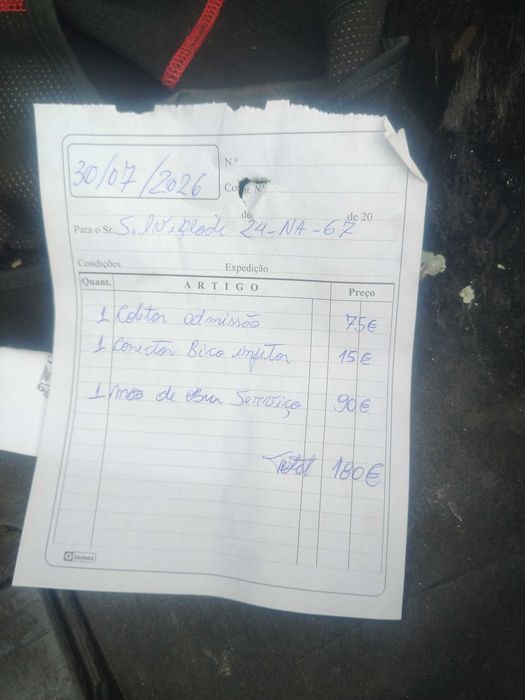 30/07/2026
N.º
Cont. N.º
de de 20
Para o Sr. Silverblade 24-NA-67
Condições Expedição
Quant. ARTIGO Preço
1 Coletor admissão 75€
1 Conector Bico injetor 15€
1 Mao de obra Serviço 90€
Total 180€